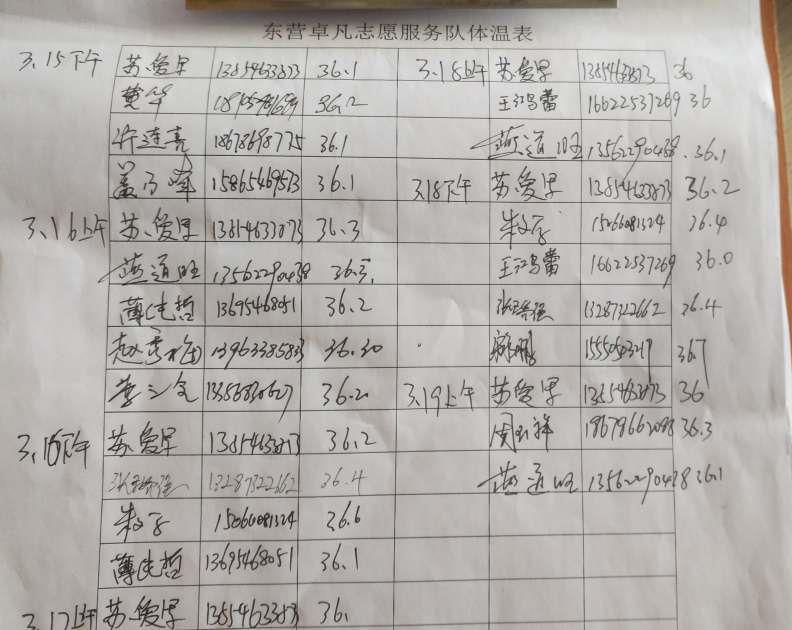 东营卓凡志愿服务队体温表
3.15下午 苏爱军 13854633873 36.1 3.18上午 苏爱军 13854633873 36
黄华 36.2 王江鸟蕾 16622537269 36
许连亮 18678698775 36.1 燕道旺 13562290438 36.1
15865469573 36.1 3.18下午 苏爱军 13854633873 36.2
3.16上午 苏爱军 13854633873 36.3 15066081324 36.4
燕道旺 13562290438 36.3 王江鸟蕾 16622537269 36.0
薄纯哲 13695468051 36.2 13287322662 36.4
赵秀梅 13963385833 36.30 36.7
36.20 3.19上午 苏爱军 13854633873 36
3.16下午 苏爱军 13854633873 36.2 周玉祥 36.3
13287322662 36.4 燕道旺 13562290438 36.1
15066081324 36.6
薄纯哲 13695468051 36.1
3.17上午 苏爱军 13854633873 36.